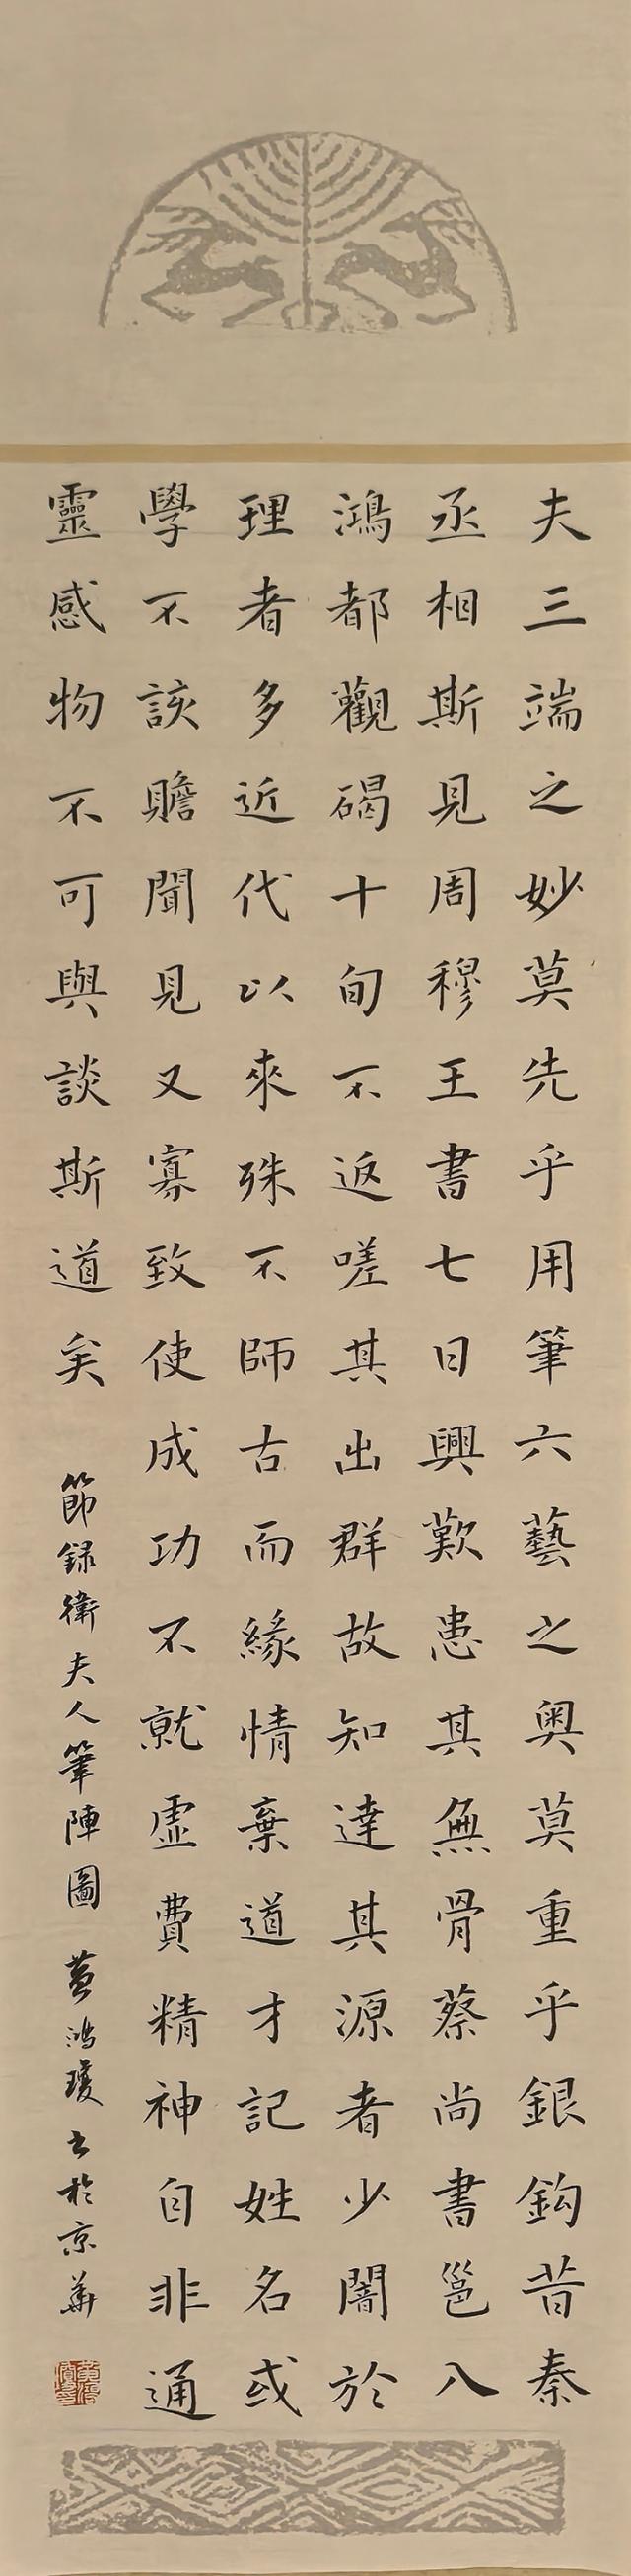 夫三端之妙莫先乎用筆六藝之奥莫重乎銀鈎昔秦
丞相斯見周穆王書七日興歎患其無骨蔡尚書邕八
鴻都觀碣十旬不返嗟其出群故知達其源者少闇於
理者多近代以來殊不師古而緣情棄道才記姓名或
學不該贍聞見又寡致使成功不就虛費精神自非通
靈感物不可與談斯道矣
節録衛夫人筆陣圖 黄鴻瓊书於京華